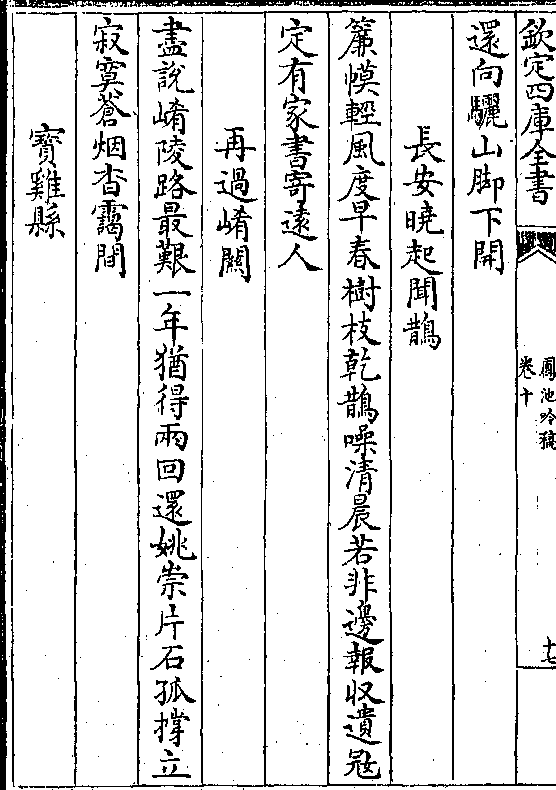 欽定四庫全書
鳳池吟稿
卷十
十七
還向驪山脚下開
長安曉起聞鵲
簾幙輕風度早春樹枝乾鵲噪清晨若非邊報収遺㓂
定有家書寄遠人
再過崤關
盡說崤陵路最艱一年猶得兩回還姚崇片石孤撐立
寂寞蒼烟杳靄間
寶雞縣